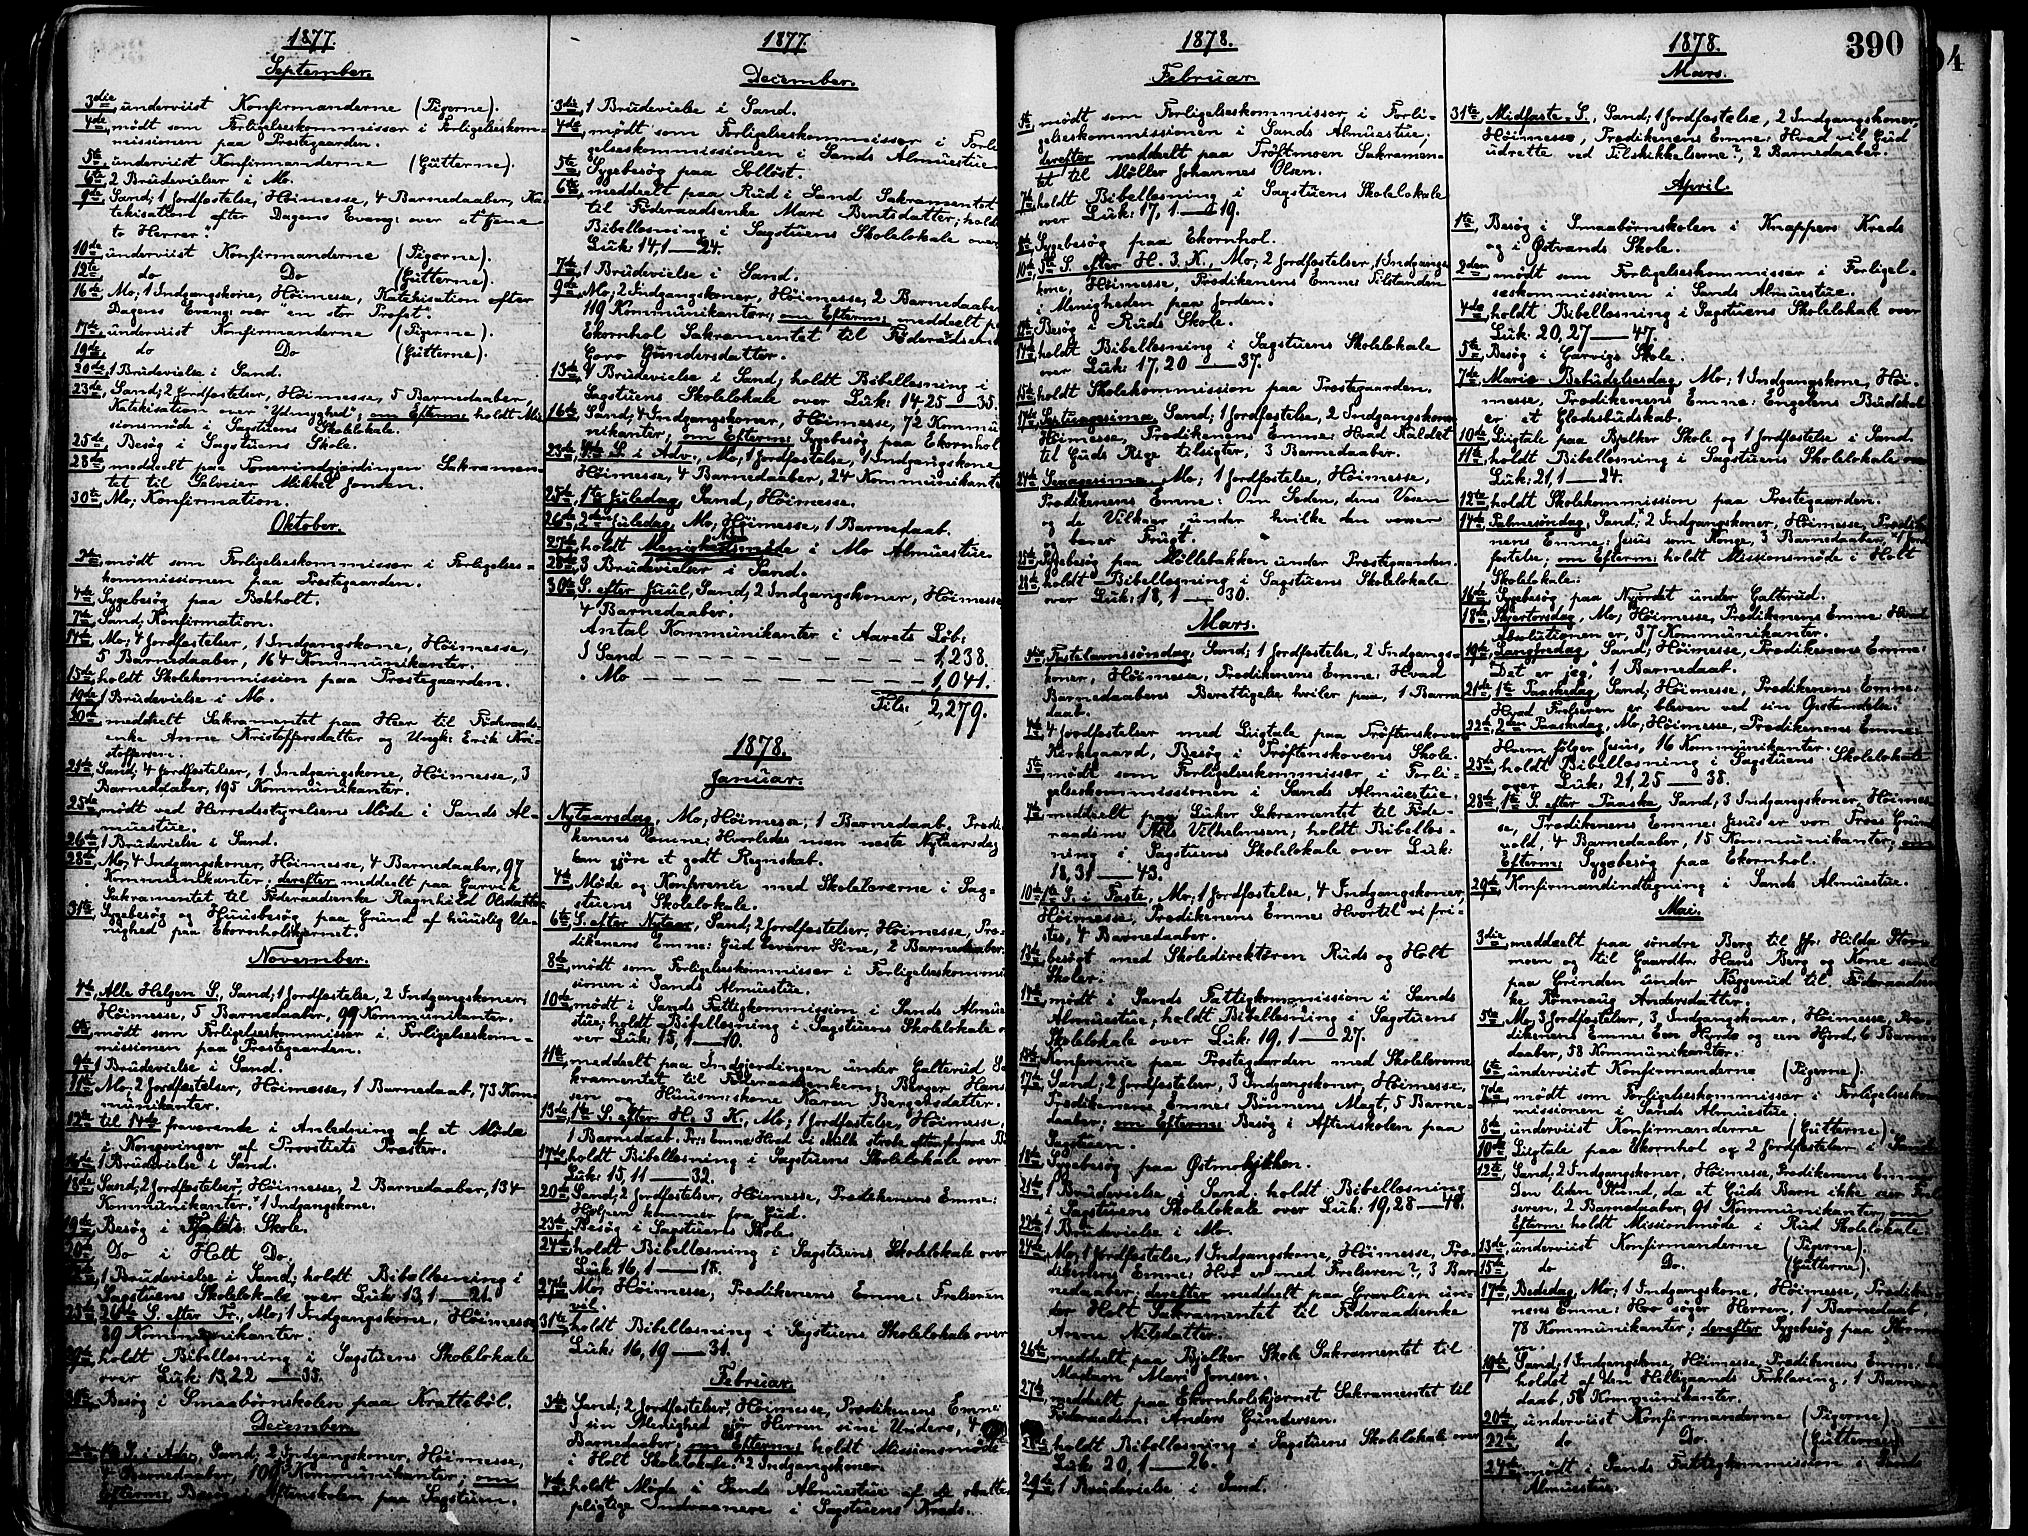 1877.
September.
3die underviist Konfirmanderne (Pigerne).
4de mödt som Forligelseskommissær i Forligelseskom-
missionen paa Præstegaarden.
5te underviist Konfirmanderne (Gutterne).
6te 2 Brudevielser i Mo.
9de Sand; 1 Jordfæstelse, Höimesse, 4 Barnedaaber, Ka-
tekisation efter Dagens Evang: over "at tjene
to Herrer".
10de underviist Konfirmanderne (Pigerne).
12te do Do (Gutterne).
16de Mo; 1 Indgangskone, Höimesse, Katekisation efter
Dagens Evang: over "en stor Profet".
17de underviist Konfirmanderne (Pigerne).
19de do Do (Gutterne).
20de 1 Brudevielse i Sand.
23de Sand; 2 Jordfæstelser, Höimesse, 5 Barnedaaber,
Katekisation over "Ydmyghed"; om Efterm: holdt Mis-
sionsmöde i Sagstuens Skolelokale.
25de Besög i Sagstuens Skole.
28de meddeelt paa Sakramen-
tet til Mikkel Jonsen.
30te Mo; Konfirmation.
Oktober.
2den mödt som Forligelseskommissær i Forligelses-
kommissionen paa Præstegaarden.
4de Sygebesög paa Bokholt.
7de Sand; Konfirmation.
14de Mo; 4 Jordfæstelser, 1 Indgangskone, Höimesse,
5 Barnedaaber, 164 Kommunikanter.
15de holdt Skolekommission paa Præstegaarden.
19de 1 Brudevielse i Mo.
20de meddeelt Sakramentet paa Heer til Föderaads-
enke Anne Kristoffersdatter og Ungk: Erik Kri-
stoffersen.
21de Sand; 4 Jordfæstelser, 1 Indgangskone, Höimesse, 3
Barnedaaber, 195 Kommunikanter.
25de mödt ved Herredsstyrelsens Möde i Sands Al-
muestue.
26de 1 Brudevielse i Sand.
28de Mo, 4 Indgangskoner, Höimesse, 4 Barnedaaber, 97
Kommunikanter; derefter meddeelt paa Garvik
Sakramentet til Föderaadsenke Ragnhild Olsdatter.
31te Sygebesög og Huusbesög paa Grund af huuslig Ue-
nighed paa Ekornholskjernet.
November.
4de Alle Helgen S., Sand; 1 Jordfæstelse, 2 Indgangskoner,
Höimesse, 5 Barnedaaber, 99 Kommunikanter.
6te mödt som Forligelseskommissær i Forligelseskom-
missionen paa Præstegaarden.
9de 1 Brudevielse i Sand.
11te Mo, 2 Jordfæstelser, Höimesse, 1 Barnedaab, 73 Kom-
munikanter.
12te til 14de fraværende i Anledning af et Möde
i Kongsvinger af Provstiets Præster.
16de 1 Brudevielse i Sand.
18de Sand; 2 Jordfæstelser, Höimesse, 2 Barnedaaber, 134
Kommunikanter. 1 Indgangskone.
19de Besög i Skole.
20de Do i Holt Do.
1 Brudevielse i Sand; holdt Bibellæsning i
Sagstuens Skolelokale over Luk: 13,1—21.
25de 26de S. efter Tr., Mo; 1 Indgangskone, Höimesse,
89 Kommunikanter.
29de holdt Bibellæsning i Sagstuens Skolelokale
over Luk: 13,22—35.
30te Besög i Smaabörnskolen paa Kratteböl.
December.
2den 1te S. i Adv., Sand, 2 Indgangskoner, Höimesse,
4 Barnedaaber, 100 Kommunikanter; om
Efterm: Besög i Aftenskolen paa Sagstuen.
1877.
December.
3die 1 Brudevielse i Sand.
4de mödt som Forligelseskommissær i Forli-
gelseskommissionen i Sands Almuestue.
5te Sygebesög paa Solløst.
6te meddeelt paa Rud i Sand Sakramentet
til Föderaadsenke Mari Bentsdatter; holdt
Bibellæsning i Sagstuens Skolelokale over
Luk: 14,1—24.
7de 1 Brudevielse i Sand.
9de Mo; 2 Indgangskoner, Höimesse, 2 Barnedaaber,
119 Kommunikanter; om Efterm: meddeelt paa
Ekornhol Sakramentet til Föderaadsenke
Goro Gundersdatter.
13de 4 Brudevielse i Sand; holdt Bibellæsning i
Sagstuens Skolelokale over Luk: 14,25—35.
16de Sand, 4 Indgangskoner, Höimesse, 72 Kommu-
nikanter; om Efterm: Sygebesög paa Ekornhol
23de 4de S. i Adv., Mo, 1 Jordfæstelse, 1 Indgangskone
Höimesse, 4 Barnedaaber, 24 Kommunikanter
25de 1te Juledag, Sand, Höimesse.
26de 2den Juledag, Mo, Höimesse, 1 Barnedaab.
27de holdt Menighedsmöde i Mo Almuestue.
28de 3 Brudevielser i Sand.
30te S. efter Juul, Sand, 2 Indgangskoner, Höimesse
4 Barnedaaber.
Antal Kommunikanter i Aarets Löb:
I Sand – – – – – – – – – – 1,238.
" Mo – – – – – – – – – – – 1,041.
Tils: 2,279.
1878.
Januar.
Nytaarsdag, Mo; Höimesse, 1 Barnedaab, Prædi-
kenens Emne: Hvorledes man næste Nytaarsdag
kan gjöre et godt Regnskab.
4de Möde og Konference med Skolelærerne i Sag-
stuens Skolelokale.
6te S. efter Nytaar, Sand; 2 Jordfæstelser, Höimesse, Præ-
dikenens Emne: Gud bevarer Sine, 2 Barnedaaber.
8de mödt som Forligelseskommissær i Forligelseskommis-
sionen i Sands Almuestue.
10de mödt i Sands Fattigkommission i Sands Almue-
stue; holdt Bibellæsning i Sagstuens Skolelokale o-
ver Luk: 15,1—10.
11te meddeelt paa Indjordingen under Galterud Sa-
kramentet til Föderaadsenkem: Berger Han-
sen og Huusmskone Karen Bergersdatter.
13de 1te S. efter H. 3 K., Mo; 1 Jordfæstelse, Höimesse,
1 Barnedaab. Pr: Emne:
17de holdt Bibellæsning i Sagstuens Skolelokale over
Luk: 15,11—32.
20de Sand, 2 Jordfæstelser, Höimesse, Prædikenens Emne:
Hjelpen kommer fra Gud.
23de Besög i Sagstuens Skole.
24de holdt Bibellæsning i Sagstuens Skolelokale over
Luk: 16,1—18.
27de Mo; Höimesse, Prædikenens Emne: Frelseren
vil.
31te holdt Bibellæsning i Sagstuens Skolelokale over
Luk: 16,19—31.
Februar.
3die Sand; 2 Jordfæstelser, Höimesse, Prædikenens Emne:
I sin Menighed gjör Herren sine Undere, 4
Barnedaaber; om Efterm: holdt Missionsmöde
i Holt Skolelokale. 2 Indgangskoner.
4de holdt Möde i Sands Almuestue af de skatte-
pligtige Indvaanere i Sagstuens Kreds.
1878.
Februar.
5te mödt som Forligelseskommissær i Forli-
gelseskommissionen i Sands Almuestue,
derefter meddeelt paa Tröftmoen Sakramen-
tet til Möller Johannes Olsen.
7de holdt Bibellæsning i Sagstuens Skolelokale
over Luk: 17,1—19.
8de Sygebesög paa Ekornhol.
10de 5te S. efter H. 3 K., Mo; 2 Jordfæstelser, 1 Indgangs-
kone, Höimesse, Prædikenens Emne: Tilstanden
i Menigheden paa Jorden.
Besög i Ruds Skole.
14de holdt Bibellæsning i Sagstuens Skolelokale
over Luk: 17,20—37.
15de holdt Skolekommission paa Præstegaarden.
17de Septuagesima, Sand; 1 Jordfæstelse, 2 Indgangskoner
Höimesse, Prædikenens Emne: Hvad Kaldet
til Guds Rige tilsigter, 3 Barnedaaber.
24de Sexagesima, Mo; 1 Jordfæstelse, Höimesse,
Prædikenens Emne: Om Sæden, dens Væsen
og de Vilkaar under hvilke den voxer
og bærer Frugt.
25de Sygebesög paa Möllebakken under Præstegaarden.
28de holdt Bibellæsning i Sagstuens Skolelokale
over Luk: 18,1—30.
Mars.
3die Fastelavnssöndag, Sand; 1 Jordfæstelse, 2 Indgangs-
koner, Höimesse, Prædikenens Emne: Hvad
Barnedaabens Berettigelse hviler paa, 1 Barne-
daab.
4de 4 Jordfæstelser med Liigtale paa Tröftskoven
Kirkegaard, Besög i Tröftenskovens Skole.
5te mödt som Forligelseskommissær i Forli-
gelseskommissionen i Sands Almuestue.
7de meddeelt paa Luker Sakramentet til Föde-
raadsm: Nils Vilhelmsen; holdt Bibellæs-
ning i Sagstuens Skolelokale over Luk:
18,31—43.
10de 1te S. i Faste, Mo; 1 Jordfæstelse, 4 Indgangskoner,
Höimesse, Prædikenens Emne: Hvortil vi fri-
stes, 4 Barnedaaber.
13de besögt med Skoledirektören Ruds og Holt
Skoler.
14de mödt i Sands Fattigkommission i Sands
Almuestue; holdt Bibellæsning i Sagstuens
Skolelokale over Luk: 19,1—27.
Konference paa Præstegaarden med Skolelærerne
17de Sand; 2 Jordfæstelser, 3 Indgangskoner, Höimesse,
Prædikenens Emne: Bönnens Magt, 5 Barne-
daaber; om Efterm: Besög i Aftenskolen paa
Sagstuen.
18de Sygebesög paa Østmobjikken.
21de 1 Brudevielse i Sand; holdt Bibellæsning
i Sagstuens Skolelokale over Luk: 19,28—48.
22de 1 Brudevielse i Mo.
24de Mo; 1 Jordfæstelse, 1 Indgangskone, Höimesse, Præ-
dikenens Emne: Hvo er med Frelseren?, 3 Bar-
nedaaber; derefter meddeelt paa Gravlien un-
der Holt Sakramentet til Föderaadsenke
Anne Nilsdatter.
26de meddeelt paa Bjelker Skole Sakramentet til
Madam Mari Jonsen.
27de meddeelt paa Ekornholskjernet Sakramentet til
Föderaadsm: Anders Gundersen.
28de holdt Bibellæsning i Sagstuens Skolelokale over
Luk: 20,1—26.
29de 1 Brudevielse i Sand.
1878.
390
Mars.
31te Midfaste-S., Sand; 1 Jordfæstelse, 2 Indgangskoner,
Höimesse, Prædikenens Emne: Hvad vil Gud
udrette ved Tilskikkelserne?, 2 Barnedaaber.
April.
1te Besög i Smaabörnskolen i Knappers Kreds
og i Østvands Skole.
2den mödt som Forligelseskommissær i Forligel-
seskommissionen i Sands Almuestue.
4de holdt Bibellæsning i Sagstuens Skolelokale over
Luk: 20,27—47.
5te Besög i Garvigs Skole.
7de Mariæ Bebudelsesdag, Mo; 1 Indgangskone, Höi-
messe, Prædikenens Emne: Engelens Budskab
er et Glædesbudskab.
10de Liigtale paa Bjelker Skole og 1 Jordfæstelse i Sand.
11te holdt Bibellæsning i Sagstuens Skolelokale over
Luk: 21,1—24.
12te holdt Skolekommission paa Præstegaarden.
14de Palmesöndag, Sand; 2 Indgangskoner, Höimesse, Prædike-
nens Emne: Jesus som Konge, 3 Barnedaaber, 4 Jord-
fæstelse; om Efterm: holdt Missionsmöde i Holt
Skolelokale.
16de Sygebesög paa Nyjordet under Galterud.
18de Skjertorsdag, Mo, Höimesse, Prædikenens Emne Hvad
Absolutionen er, 37 Kommunikanter.
19de Langfredag, Sand, Höimesse, Prædikenens Emne:
Det er jeg, 1 Barnedaab.
21de 1te Paaskedag, Sand, Höimesse, Prædikenens Emne:
Hvad Frelseren er bleven ved sin Opstandelse.
22de 2den Paaskedag, Mo, Höimesse, Prædikenens Emne:
Hvem fölger Jesus, 16 Kommunikanter.
25de holdt Bibellæsning i Sagstuens Skolelokale
over Luk: 21,25—38.
28de 1te S. efter Paaske, Sand, 3 Indgangskoner, Höimes-
se, Prædikenens Emne: Jesus er vor Troes Grund-
vold, 4 Barnedaaber, 15 Kommunikanter; om
Efterm: Sygebesög paa Ekornhol.
29de Konfirmandindtegning i Sands Almuestue.
Mai.
3die meddeelt paa söndre Berg til Hilda
moen og til Gaardbr: Hans Berg og Kone samt
paa Grinden under Kuggerud til Föderaadsen-
ke Rönnaug Andersdatter.
5te Mo, 3 Jordfæstelser, 3 Indgangskoner, Höimesse, Præ-
dikenens Emne: Een Hyrde og een Hjord, 6 Barne-
daaber, 58 Kommunikanter.
6te underviist Konfirmanderne (Pigerne).
7de mödt som Forligelseskommissær i Forligelseskom-
missionen i Sands Almuestue.
8de underviist Konfirmanderne (Gutterne).
10de Liigtale paa Ekornhol og 2 Jordfæstelser i Sand.
12te Sand; 2 Indgangskoner, Höimesse, Prædikenens Emne:
Den liden Stund, da et Guds Barn ikke seer Frel-
seren, 2 Barnedaaber, 91 Kommunikanter; om
Efterm: holdt Missionsmöde i Rud Skolelokale.
13de underviist Konfirmanderne (Pigerne).
15de do Do. (Gutterne).
17de Bededag, Mo; 1 Indgangskone, Höimesse, Prædike-
nens Emne: Hvo söger Herren, 1 Barnedaab,
78 Kommunikanter; derefter Sygebesög paa
en.
19de Sand; 1 Indgangskone, Höimesse, Prædikenens Emne:
holdet af den Helligaands Forklaring, 1 Barne-
daab, 58 Kommunikanter.
20de underviist Konfirmanderne (Pigerne)
22de do Do. (Gutterne)
24de mödt i Sands Fattigkommission i Sands
Almuestue.